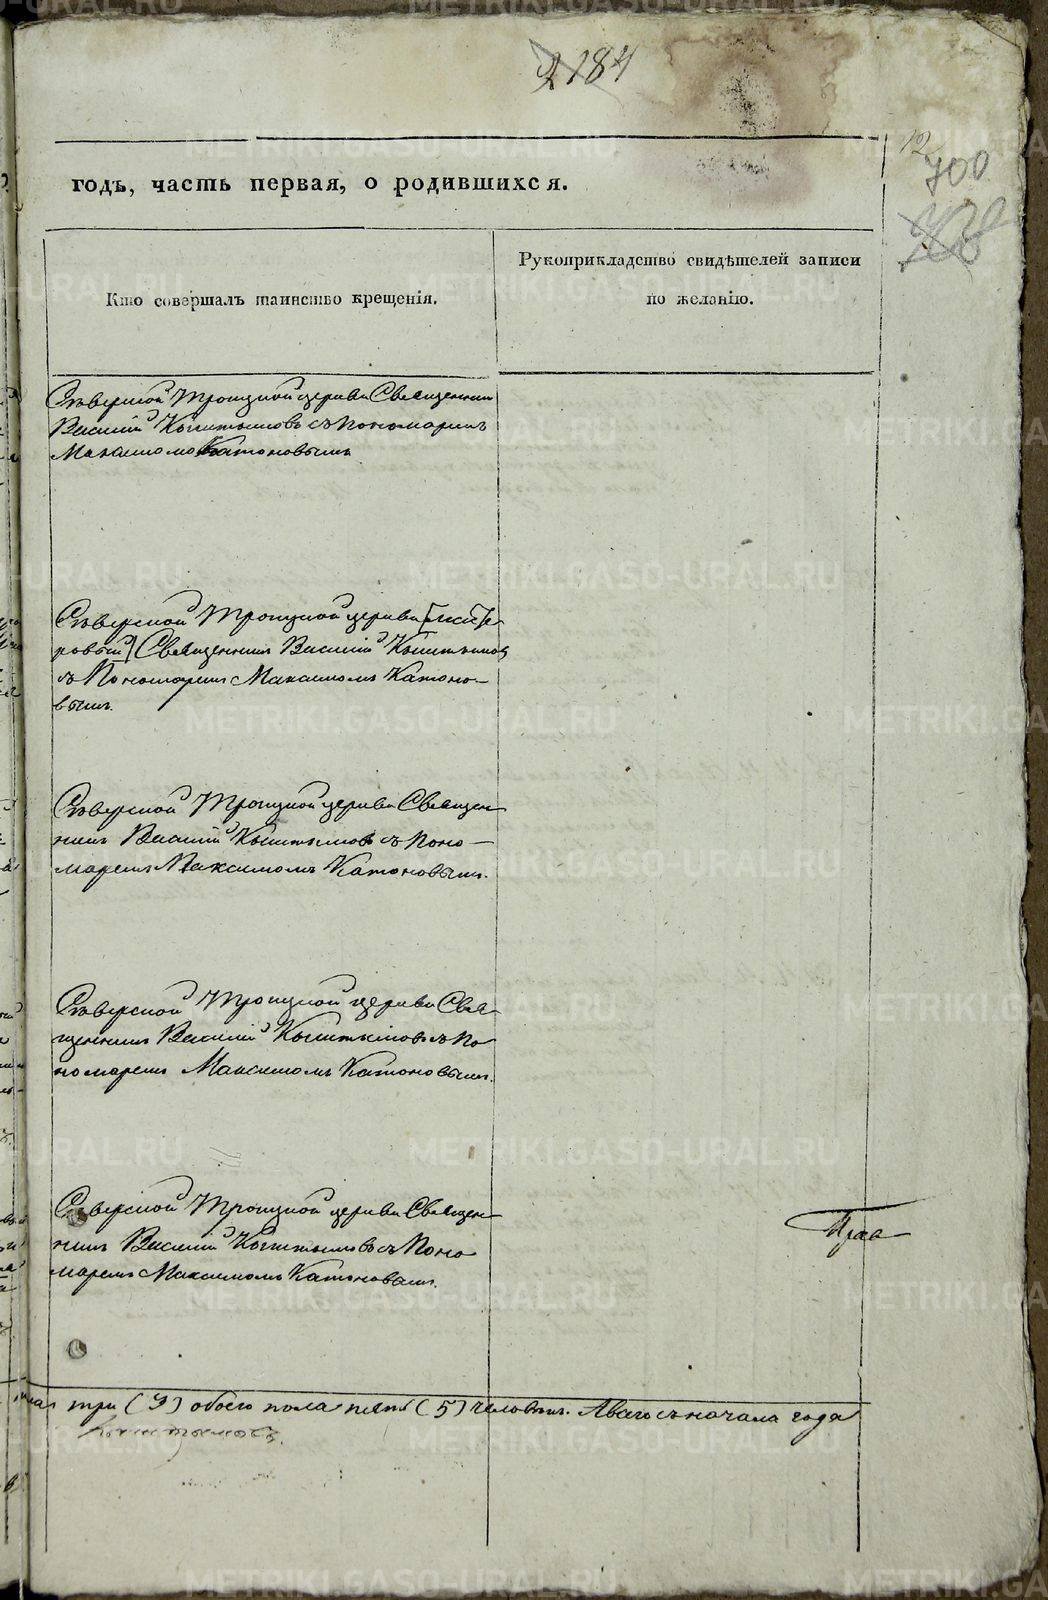 2184
12
700
годъ, часть первая, о родившихся.
Кто совершалъ таинство крещенія.
Рукоприкладство свидѣтелей записи
по желанію.
Сѣверской Троицкой церкви Священникъ
Василій Кыштымовъ съ Пономаремъ
Максимомъ Катоновымъ
Сѣверской Троицкой церкви
ровый) Священникъ Василій Кыштымовъ
съ Пономаремъ Максимомъ Катоно-
вымъ.
Сѣверской Троицкой церкви Священ-
никъ Василій Кыштымовъ съ Поно-
маремъ Максимомъ Катоновымъ.
Сѣверской Троицкой церкви Свя-
щенникъ Василій Кыштымовъ съ По
номаремъ Максимомъ Катоновымъ.
Сѣверской Троицкой церкви Священ-
никъ Василій Кыштымовъ съ Поно
маремъ Максимомъ Катоновымъ.
три (3) обоего пола пять (5) человѣкъ. А всего съ начала года
Кыштымовъ.
METRIKI.GASO-URAL.RU